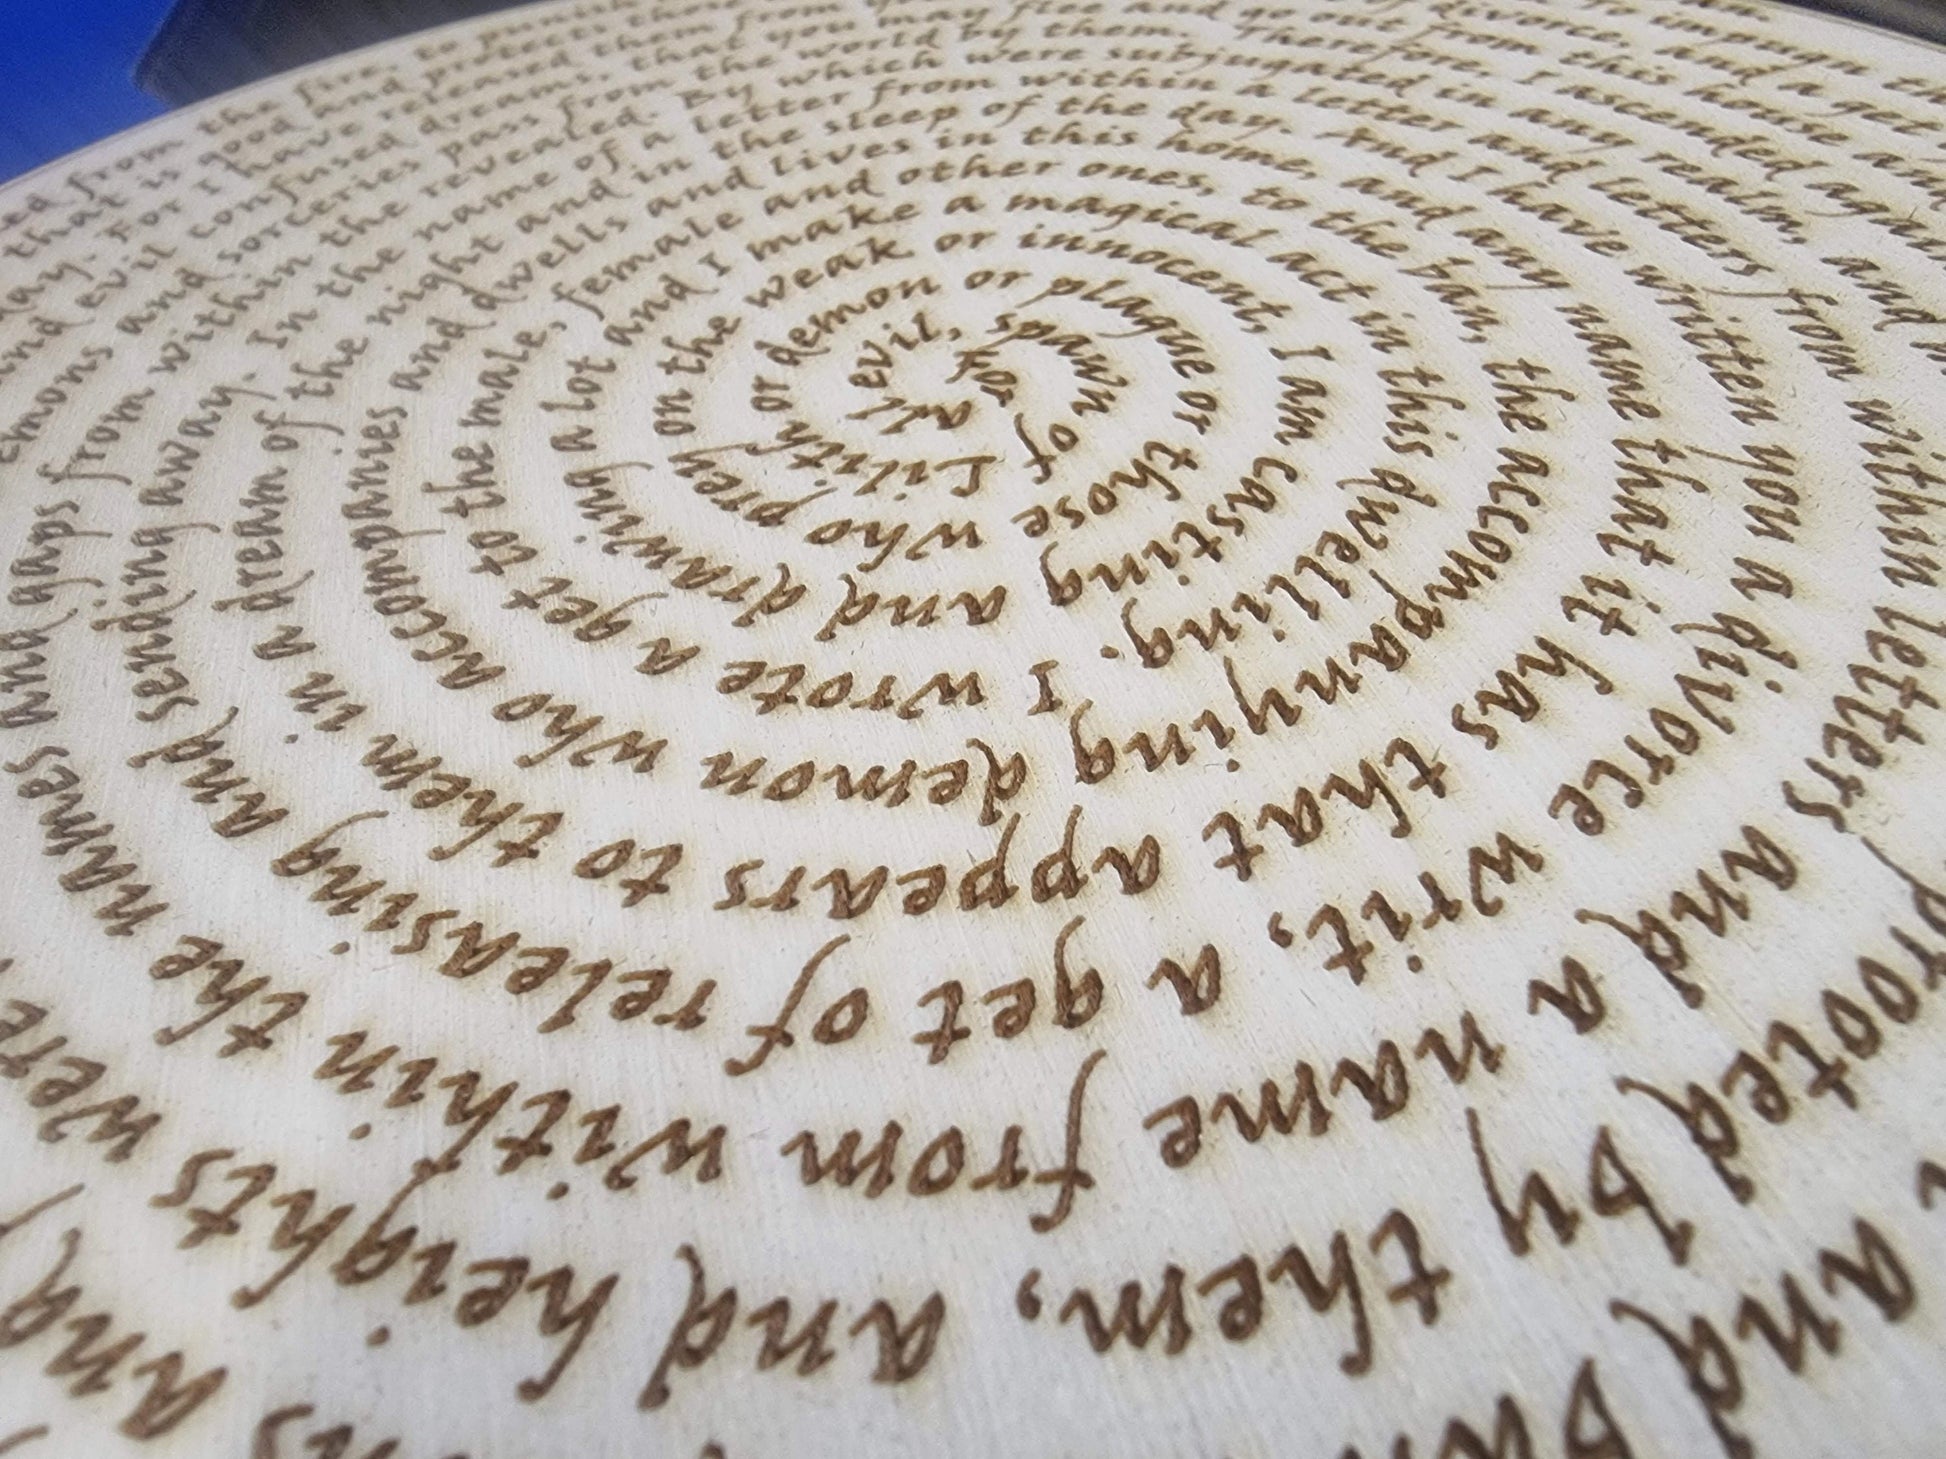 For all evil, spawn of Lilith or demon or plague or those who prey on the weak or innocent, I am casting and drawing a lot and I make a magical act in this dwelling. I wrote a get to the male, female and other ones, to the ban, the accompanying demon who accompanies and dwells and lives in this home, and any name that it has that appears to them in a dream of the night and in the sleep of the day. And I have written you a divorce writ, a get of releasing and sending away. In the name of a letter from within a letter and letters from within letters and a name from within the names and gaps from within the revealed. By which were subjugated in any realm, and
by them, and heights were
and sorceries pass from the world by them. Therefore, I ascended
and evil confused dreams, that you may flee and go out from this house and
day. For I have released them from
divorce, and a get
that is good and protect
from the fire, to